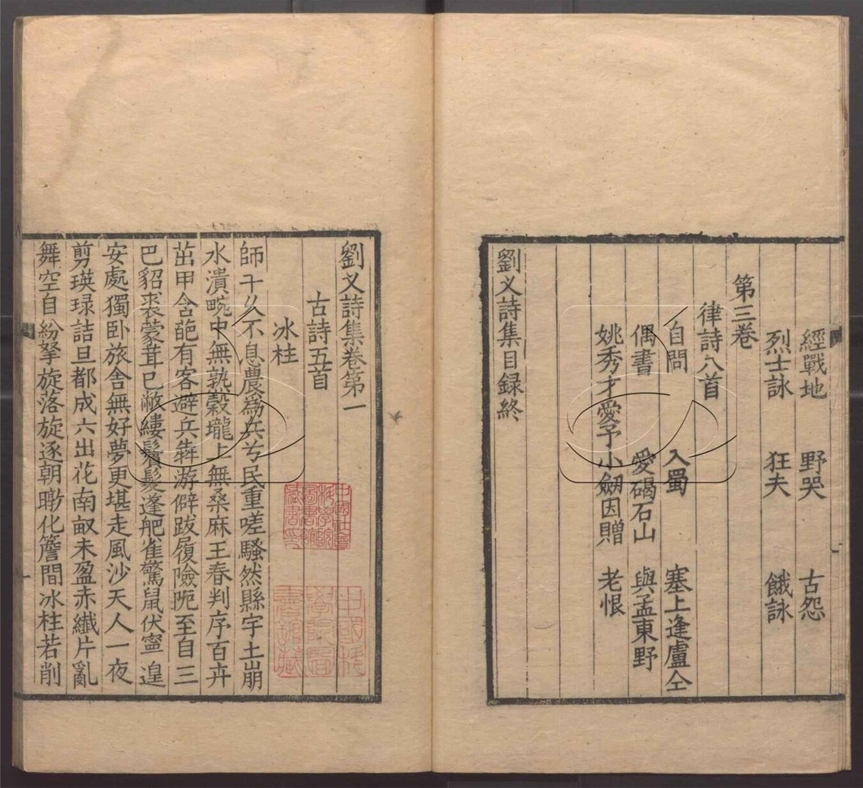 經戰地 野哭 古怨
烈士詠 狂夫 餓詠
第三卷
律詩八首
自問 入蜀 塞上逢盧仝
偶書 愛碣石山 與孟東野
姚秀才愛予小劒因贈 老恨
劉乂詩集目録終
劉乂詩集卷第一
古詩五首
冰柱
師干久不息農爲兵兮民重嗟騷然縣宇土崩
水潰畹中無熟穀壠上無桑麻王春判序百卉
茁甲含葩有客避兵奔游僻跋履險阨至自三
巴貂裘蒙茸已敝縷鬢髮蓬舥雀驚鼠伏寧遑
安處獨卧旅舍無好夢更堪走風沙天人一夜
剪瑛琭詰旦都成六出花南畝未盈赤纎片亂
舞空自紛拏旋落旋逐朝暾化簷間冰柱若削